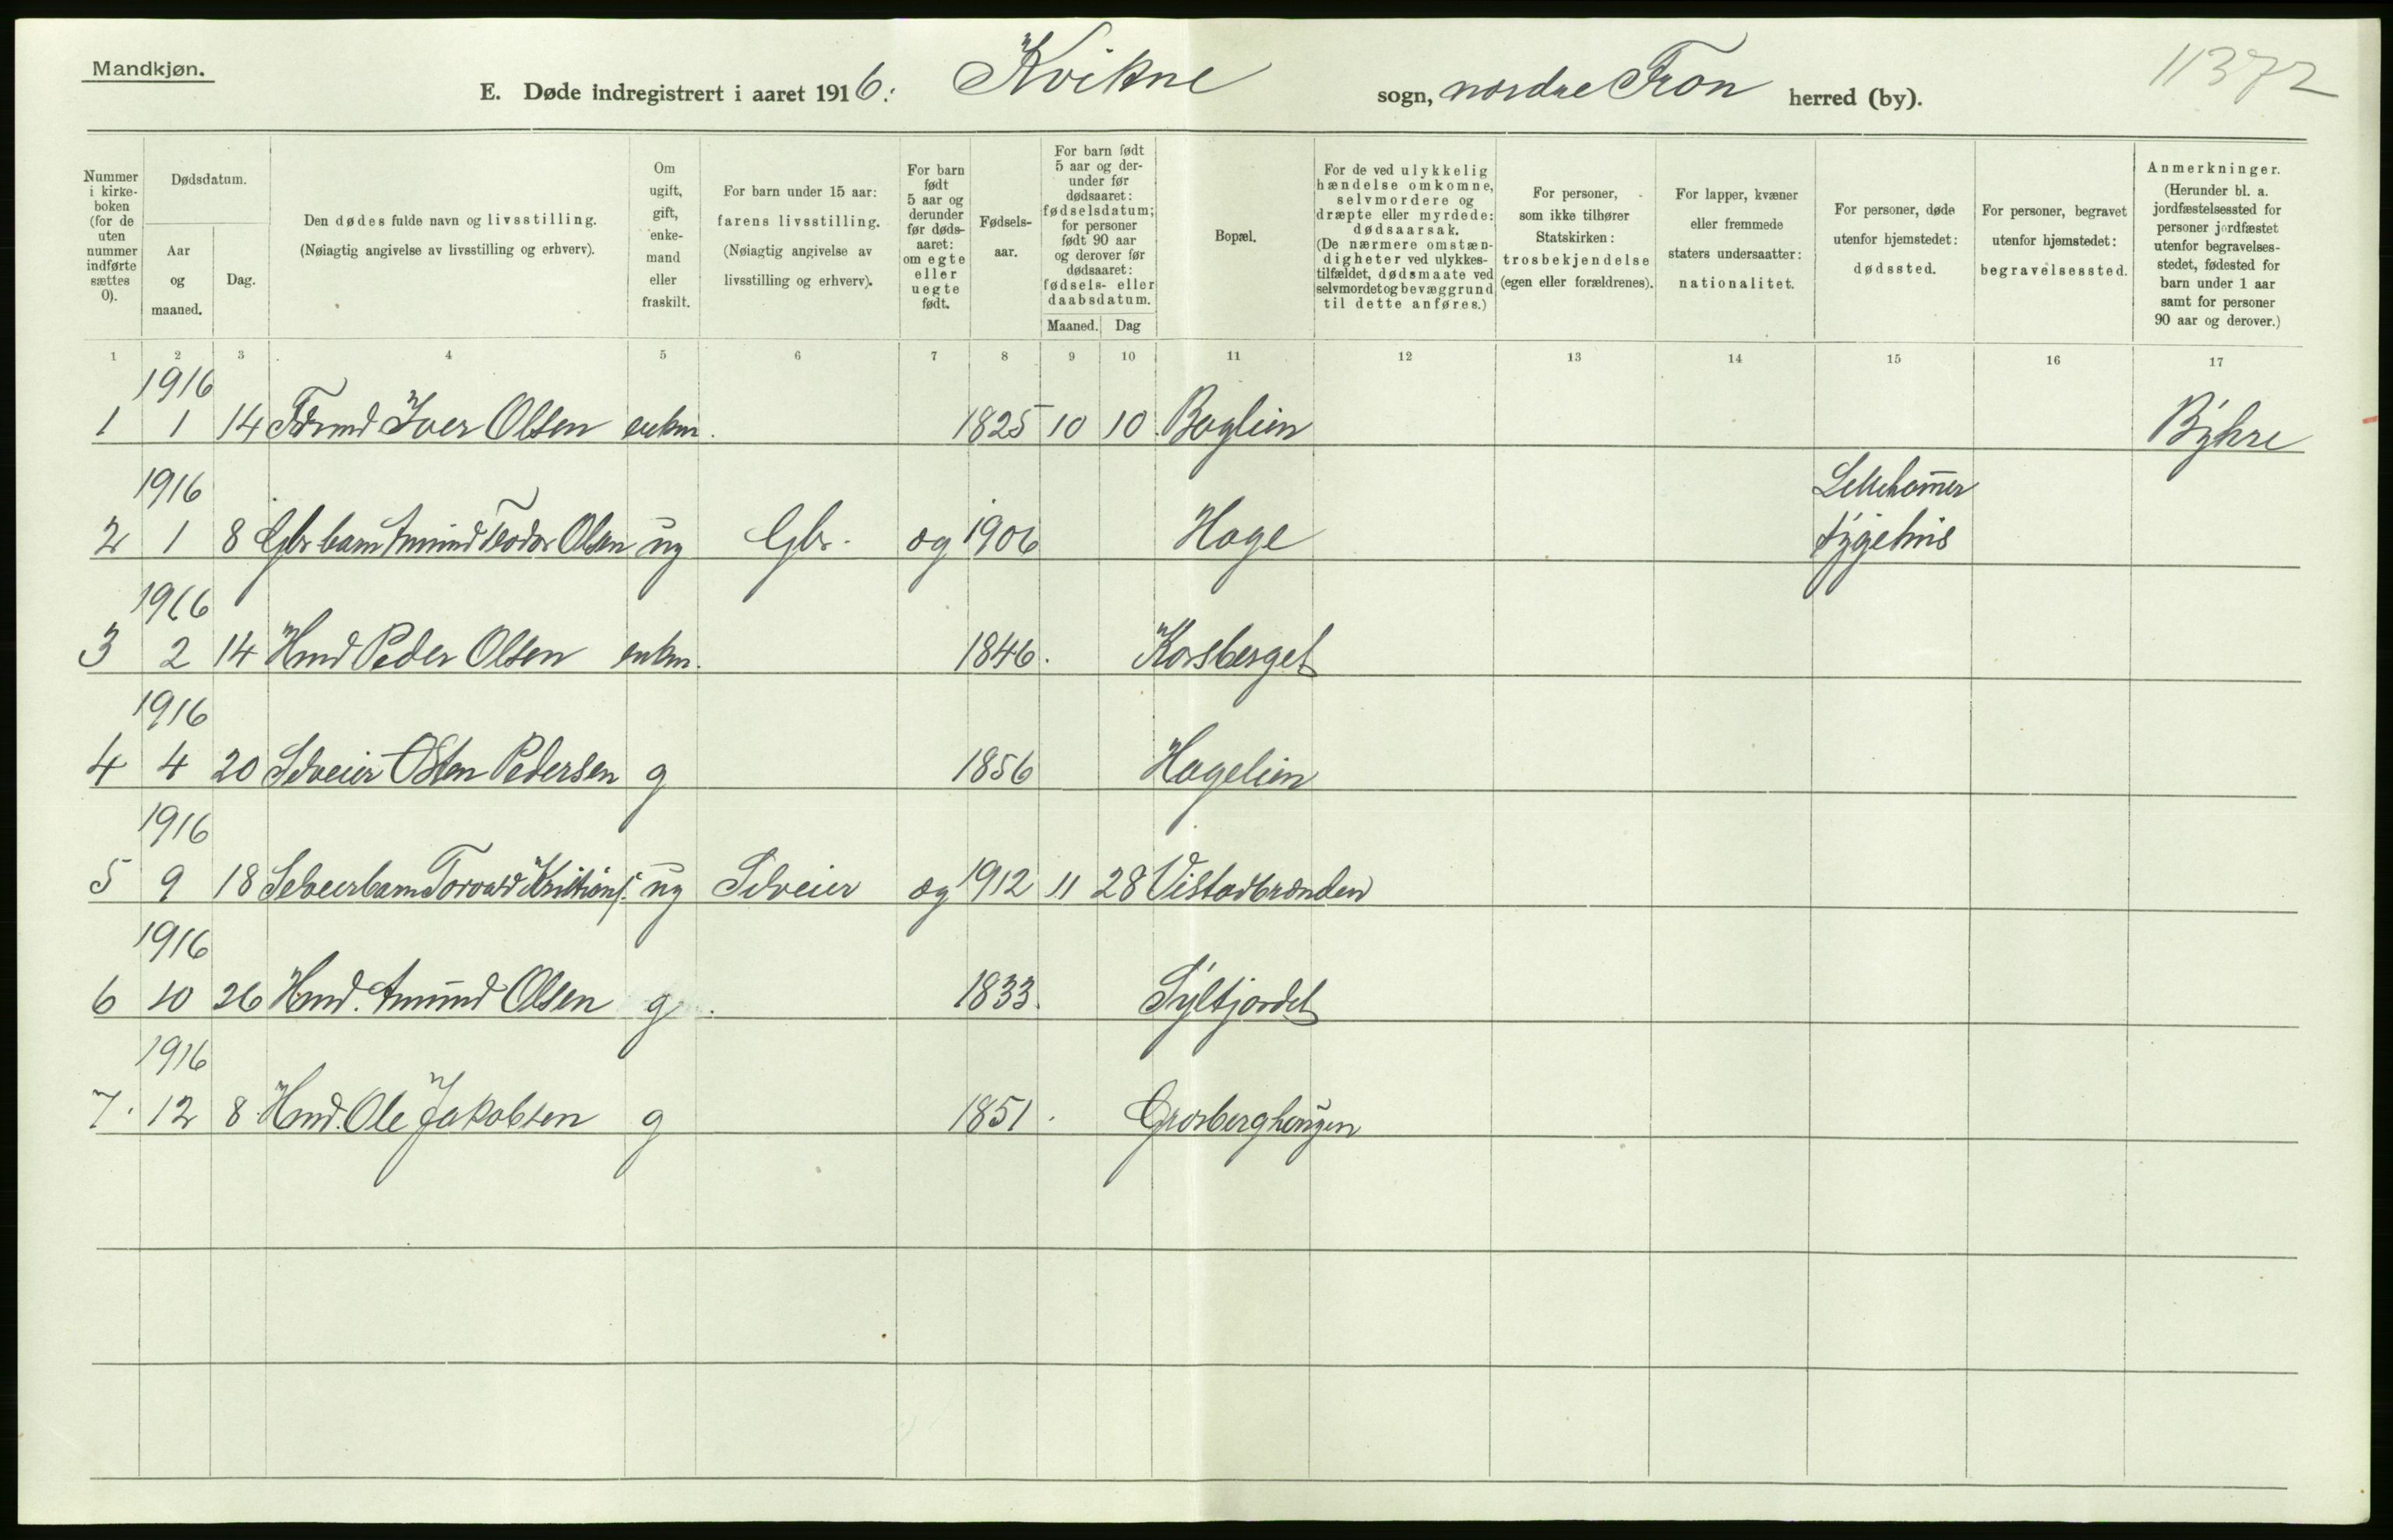 Mandkjøn.
E. Døde indregistrert i aaret 1916. Kvikne sogn, nordre Fron herred (by).
11372
Nummer i kirke- boken (for de uten nummer indførte sættes 0).
Dødsdatum.
Aar og maaned.
Dag.
Den dødes fulde navn og livsstilling.
(Nøiagtig angivelse av livsstilling og erhverv).
Om ugift, gift, enke- mand eller fraskilt.
For barn under 15 aar: farens livsstilling.
(Nøiagtig angivelse av livsstilling og erhverv).
For barn født 5 aar og derunder før døds- aaret: om egte eller uegte født.
Fødsels- aar.
For barn født 5 aar og der- under før dødsaaret: fødselsdatum; for personer født 90 aar og derover før dødsaaret: fødsels- eller daabsdatum.
Maaned. Dag
Bopæl.
For de ved ulykkelig hændelse omkomne, selvmordere og dræpte eller myrdede: dødsaarsak.
(De nærmere omstæn- digheter ved ulykkes- tilfældet, dødsmaate ved selvmordet og bevæggrund til dette anføres.)
For personer, som ikke tilhører Statskirken: trosbekjendelse (egen eller forældrenes).
For lapper, kvæner eller fremmede staters undersaatter: nationalitet.
For personer, døde utenfor hjemstedet: dødssted.
For personer, begravet utenfor hjemstedet: begravelsessted.
Anmerkninger.
(Herunder bl. a. jordfæstelsessted for personer jordfæstet utenfor begravelses- stedet, fødested for barn under 1 aar samt for personer 90 aar og derover.)
1 2 3 4 5 6 7 8 9 10 11 12 13 14 15 16 17
1916
1 1 14 Iver Olsen enkm. 1825 10 10 Baglien
1916 Lillehamer
2 1 8 Gbr barn Amund Teodor Olsen ug Gbr. æg 1906 Hage sygehus
1916
3 2 14 Hmd Peder Olsen enkm. 1846. Korsberget
1916
4 4 20 Selveier Østen Pedersen g 1856 Hagelien
1916
5 9 18 Selveierbarn Torvald Kristians. ug Selveier æg 1912 11 28 Vistadbrænden
1916
6 10 26 Hmd. Amund Olsen g. 1833. Syltjordet
1916
7. 12 8 Hmd. Ole Jakobsen g 1851. Grosberghaugen